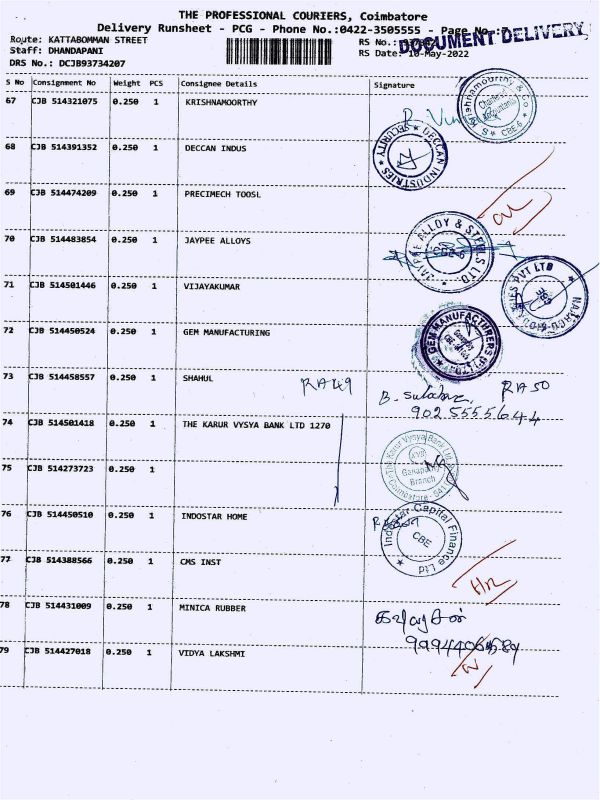 THE PROFESSIONAL COURIERS, Coimbatore
Delivery Runsheet - PCG - Phone No.:0422-3505555 - Page No.:
DOCUMENT DELIVERY
Route: KATTABOMMAN STREET
RS No.:
Staff: DHANDAPANI
RS Date: 10-May-2022
DRS No.: DCJB93734207
S No Consignment No Weight PCS Consignee Details Signature
67 CJB 514321075 0.250 1 KRISHNAMOORTHY
Krishnamoorthy & Co Chartered Accountants CBE 6
68 CJB 514391352 0.250 1 DECCAN INDUS
DECCAN INDUSTRIES SECURITY
69 CJB 514474209 0.250 1 PRECIMECH TOOSL
70 CJB 514483854 0.250 1 JAYPEE ALLOYS
JAYPEE ALLOY & STEELS LTD CBE-6
71 CJB 514501446 0.250 1 VIJAYAKUMAR
PVT LTD
72 CJB 514450524 0.250 1 GEM MANUFACTURING
GEM MANUFACTURERS
73 CJB 514458557 0.250 1 SHAHUL RA49
RA50
9025555644
74 CJB 514501418 0.250 1 THE KARUR VYSYA BANK LTD 1270
The Karur Vysya Bank Ltd KVB Ganapathy Branch Coimbatore - 641
75 CJB 514273723 0.250 1
76 CJB 514450510 0.250 1 INDOSTAR HOME
Indostar Capital Finance Ltd CBE
77 CJB 514388566 0.250 1 CMS INST
78 CJB 514431009 0.250 1 MINICA RUBBER
79 CJB 514427018 0.250 1 VIDYA LAKSHMI